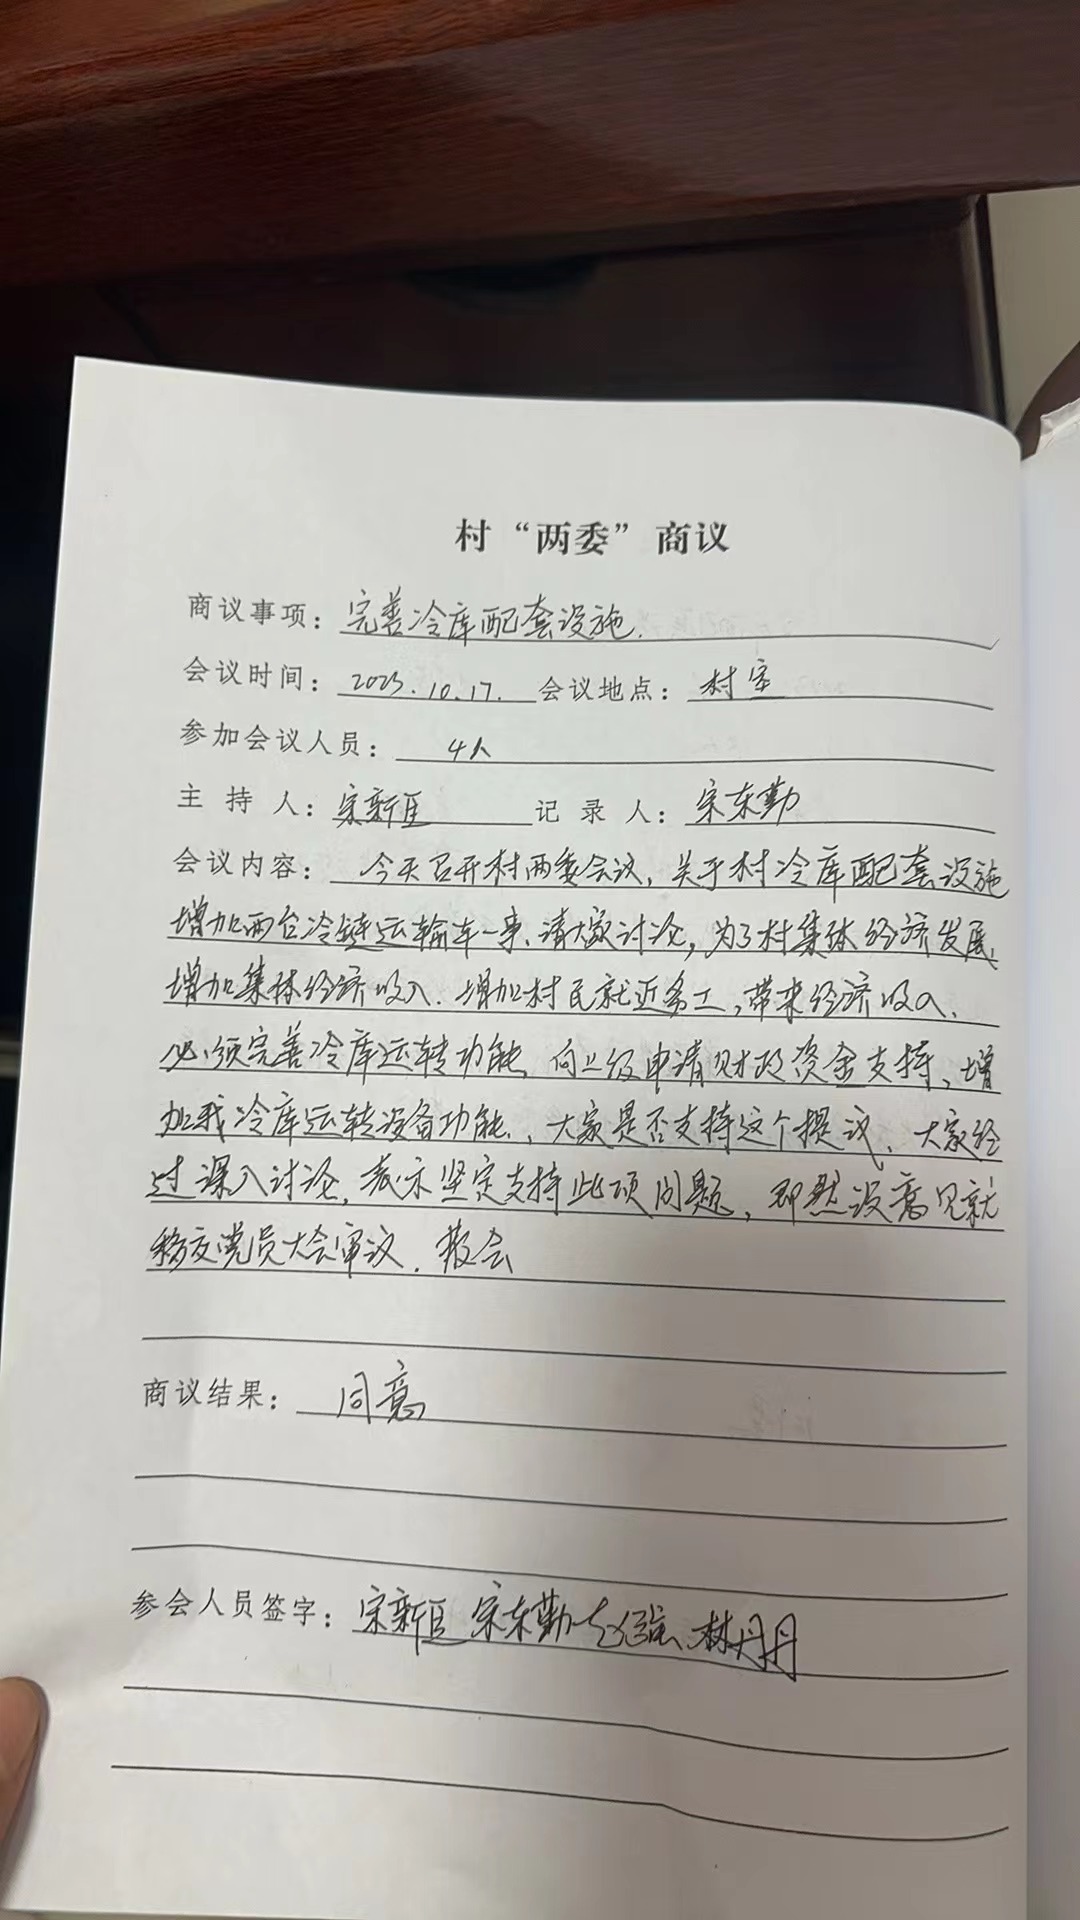 村“两委”商议
商议事项：完善冷库配套设施.
会议时间：2023.10.17. 会议地点：村室
参加会议人员：4人
主持人：宋新臣 记录人：宋东勤
会议内容：今天召开村两委会议，关于村冷库配套设施
增加两台冷链运输车一事、请大家讨论，为了村集体经济发展、
增加集体经济收入.增加村民就近务工，带来经济收入、
必须完善冷库运转功能、向上级申请财政资金支持、增
加我冷库运转设备功能、大家是否支持这个提议、大家经
过深入讨论，表示坚定支持此项问题，即然没意见就
移交党员大会审议.散会
商议结果：同意
参会人员签字：宋新臣 宋东勤 林丹丹